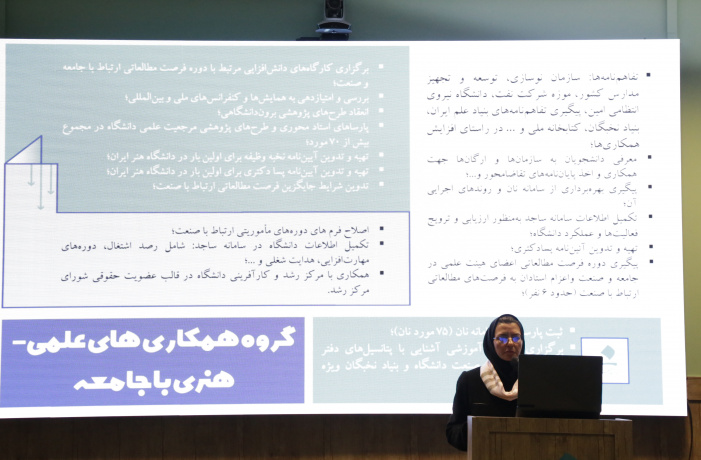 برگزاری کارگاه‌های دانش‌افزایی مرتبط با دوره فرصت مطالعاتی ارتباط با جامعه
و صنعت؛
بررسی و امتیازدهی به همایش‌ها و کنفرانس‌های ملی و بین‌المللی؛
انعقاد طرح‌های پژوهشی برون‌دانشگاهی؛
پارساهای استاد محوری و طرح‌های پژوهشی مرجعیت علمی دانشگاه در مجموع
بیش از ۷۰ مورد؛
تهیه و تدوین آیین‌نامه نخبه وظیفه برای اولین بار در دانشگاه هنر ایران؛
تهیه و تدوین آیین‌نامه پسا دکتری برای اولین بار در دانشگاه هنر ایران؛
تدوین شرایط جایگزین فرصت مطالعاتی ارتباط با صنعت؛
اصلاح فرم های دوره‌های مأموریتی ارتباط با صنعت؛
تکمیل اطلاعات دانشگاه در سامانه ساجد: شامل رصد اشتغال، دوره‌های
مهارت‌افزایی، هدایت شغلی و ...؛
همکاری با مرکز رشد و کارآفرینی دانشگاه در قالب عضویت حقوقی شورای
مرکز رشد.
گروه همکاری های علمی-
هنری با جامعه
تفاهم‌نامه‌ها: سازمان نوسازی، توسعه و تجهیز
مدارس کشور، موزه شرکت نفت، دانشگاه نیروی
انتظامی امین، پیگیری تفاهم‌نامه‌های بنیاد علم ایران،
بنیاد نخبگان، کتابخانه ملی و ... در راستای افزایش
همکاری‌ها؛
معرفی دانشجویان به سازمان‌ها و ارگان‌ها جهت
همکاری و اخذ پایان‌نامه‌های تقاضامحور و...؛
پیگیری بهره‌برداری از سامانه نان و روندهای اجرایی
آن؛
تکمیل اطلاعات سامانه ساجد به‌منظور ارزیابی و ترویج
فعالیت‌ها و عملکرد دانشگاه؛
تهیه و تدوین آئین‌نامه پسادکتری؛
پیگیری دوره فرصت مطالعاتی اعضای هیئت علمی در
جامعه و صنعت واعزام استادان به فرصت‌های مطالعاتی
ارتباط با صنعت (حدود ۶ نفر)؛
ثبت نان (۷۵ مورد نان)؛
برگزاری آموزشی آشنایی با پتانسیل‌های دفتر
دانشگاه و بنیاد نخبگان ویژه